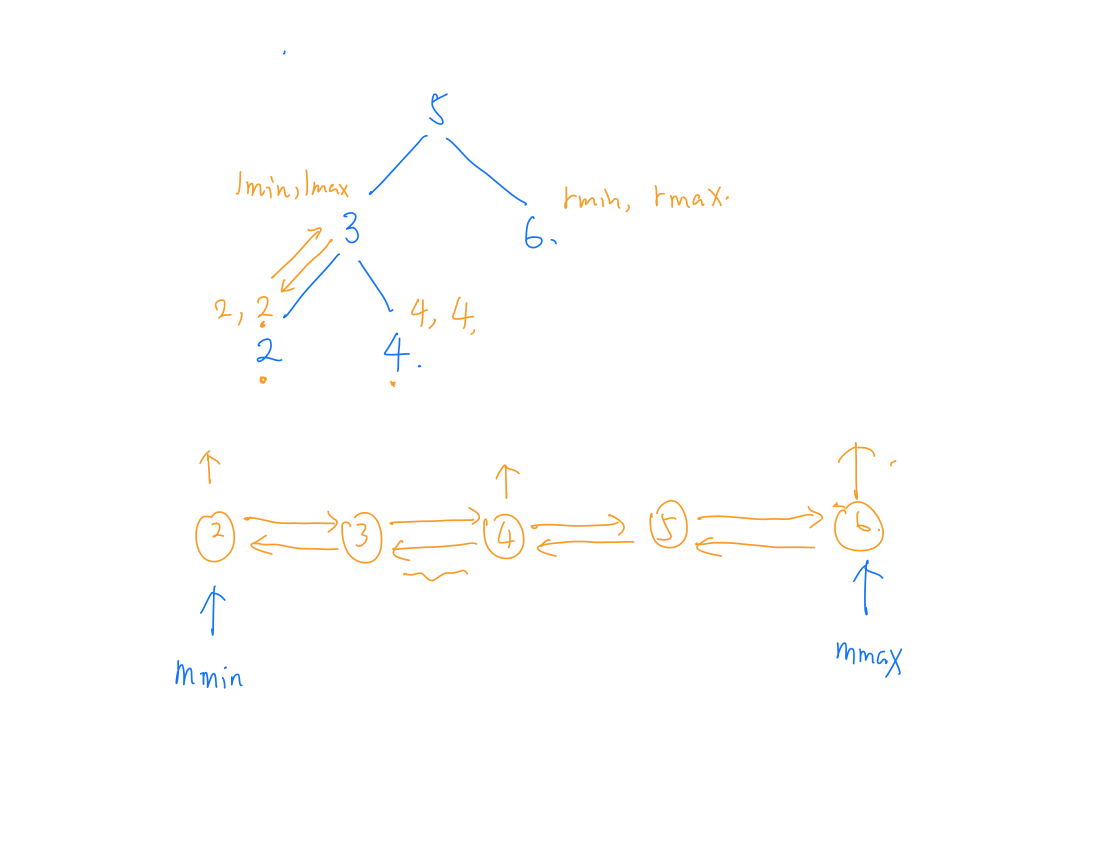 5
lmin, lmax
rmin, rmax.
3
6.
2, 2
4, 4,
2
4.
2 3 4 5 6.
mmin
mmax